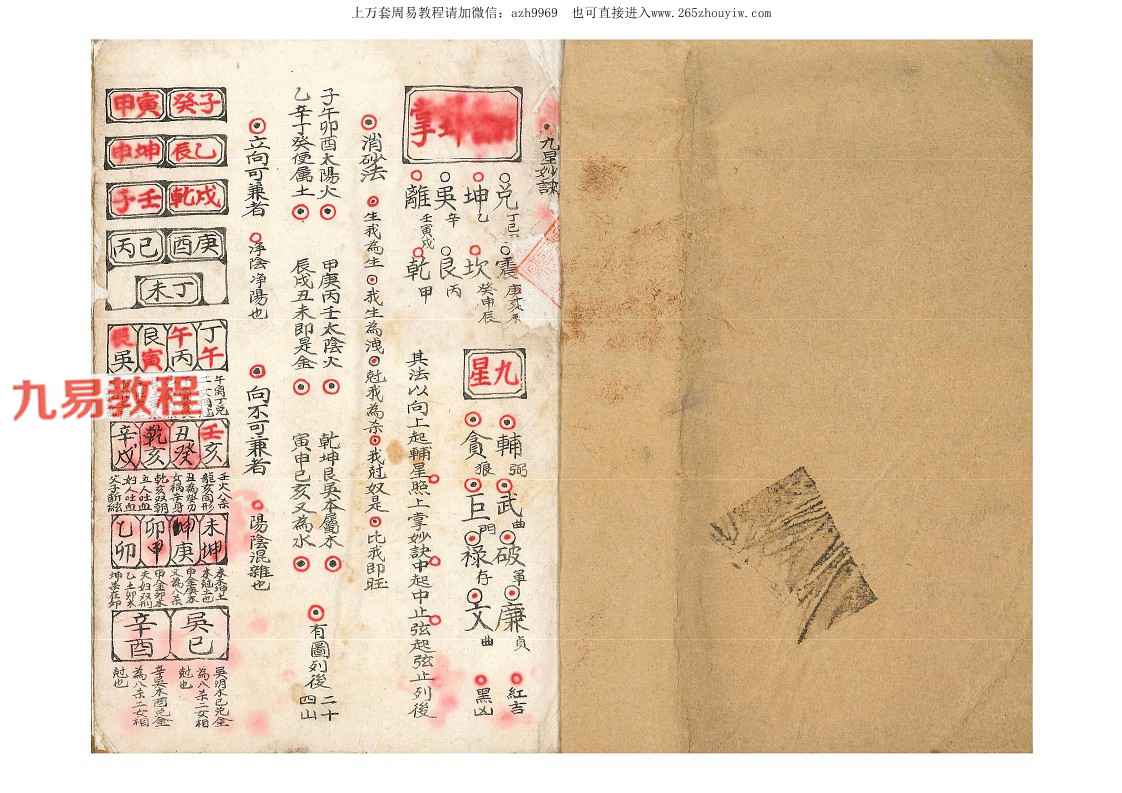 上万套周易教程请加微信：azh9969 也可直接进入www.265zhouyiw.com
九星妙訣
掌
兌 丁巳
震 庚亥未
坤 乙
坎 癸申辰
吳 辛
艮 丙
離 壬寅戌
乾 甲
九星
輔弼 武曲 破軍 廉貞 紅吉
貪狼 巨門 禄存 文曲 黑凶
其法以向上起輔星照上掌妙訣中起中止弦起弦止列後
消砂法
生我為生 我生為洩 尅我為杀 我尅奴是 比我即旺
子午卯酉太陽火 甲庚丙壬太陰火 乾坤艮吳本屬木 有圖列後 二十四山
乙辛丁癸便屬土 辰戌丑未即是金 寅申巳亥又為水
立向可兼者 淨陰净陽也
向不可兼者 陽陰混雜也
癸子 甲寅
乙辰 坤申
乾戌 壬子
庚酉 丙巳
丁未
丁午 午丙 艮寅 吳
九易教程
壬亥 丑癸 乾亥 辛戌
壬火八杀
龍亥同形
丑為癸刃
乾亥双朝
五人吐血
妇人吐血
未坤 坤庚 卯甲 乙卯
甲金庚木
又為八杀
甲金卯木
夫妇双刑
乙土卯木
吳巳 辛酉
吳明水巳兑金
為八杀二女相
尅也
辛吳木酉兑金
為八杀二女相
尅也